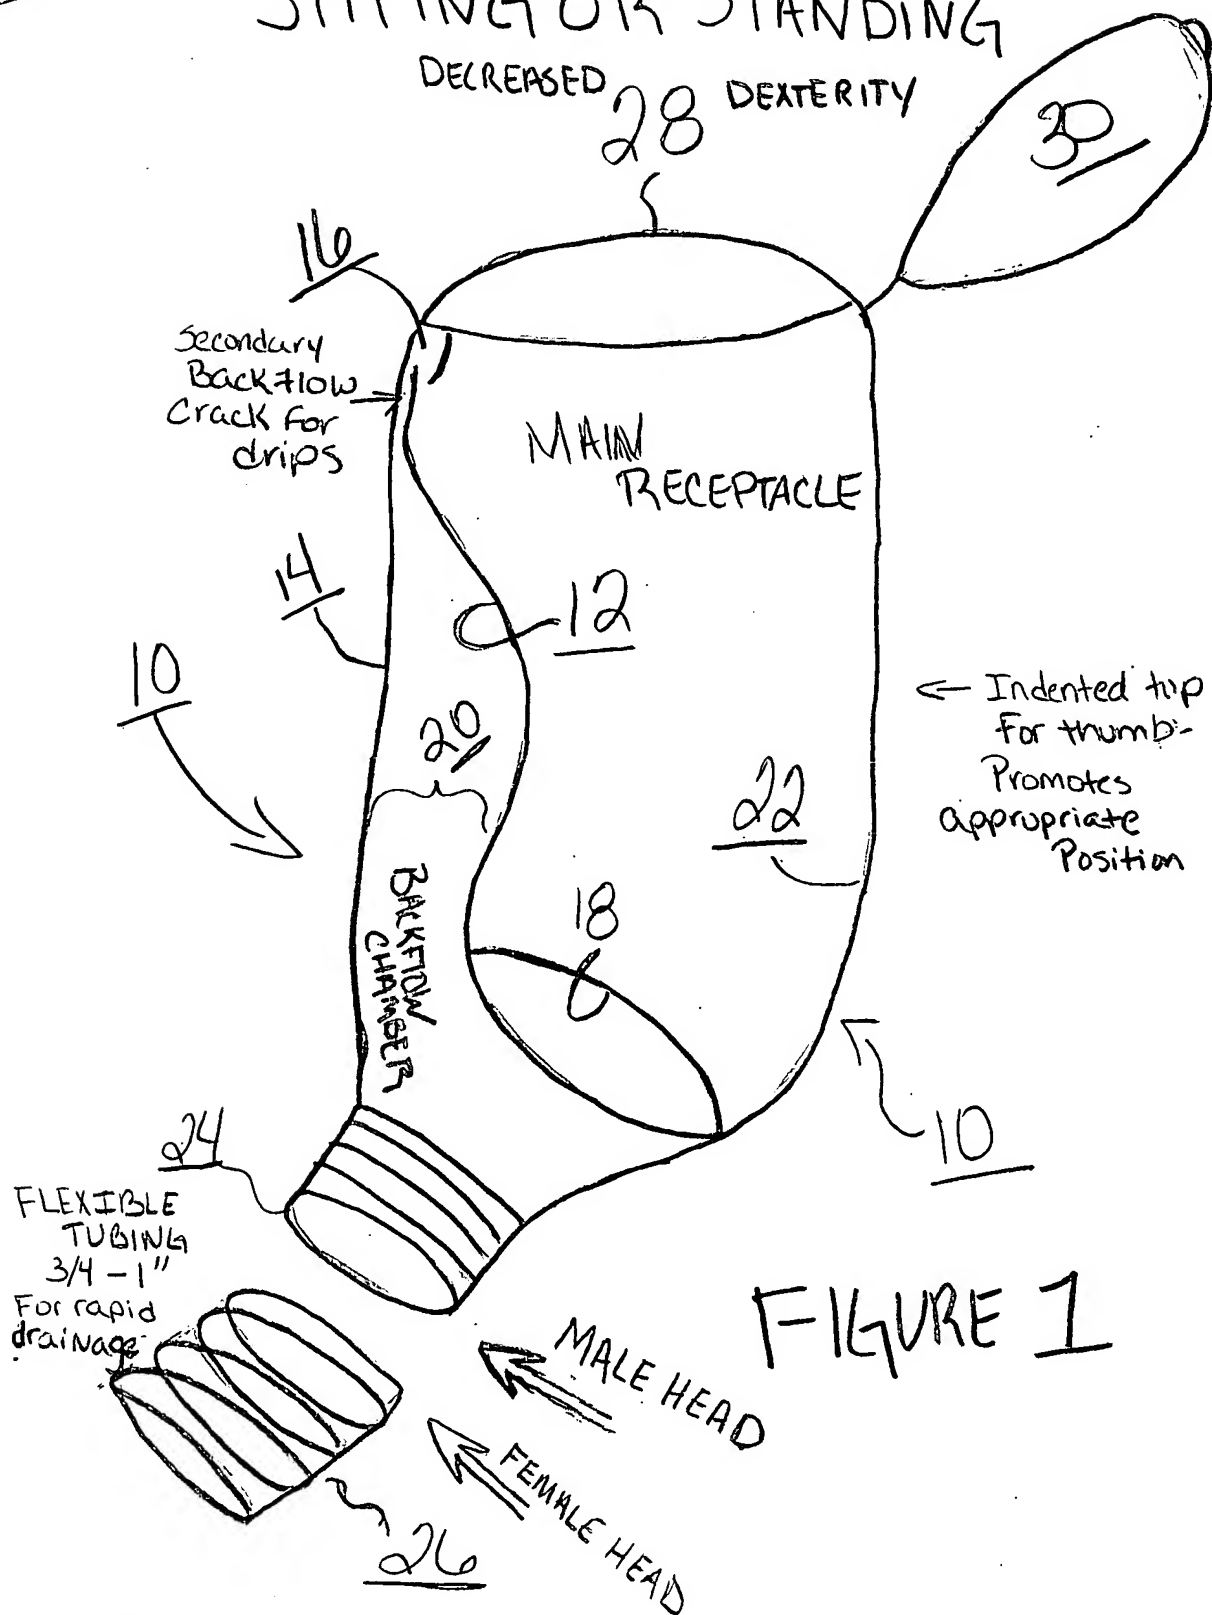 SITTING OR STANDING
DECREASED DEXTERITY
28
30
16
Secondary
Backflow
Crack For
drips
MAIN
RECEPTACLE
14
12
10
20
← Indented tip
For thumb-
Promotes
appropriate
Position
22
18
BACKFLOW
CHAMBER
10
24
FLEXIBLE
TUBING
3/4 - 1"
For rapid
drainage
FIGURE 1
MALE HEAD
FEMALE HEAD
26